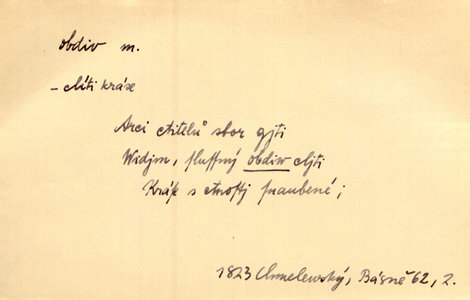 obdiv m.
– cítiti kráse
Arci ctitelů sbor gjti
Widjm, slussný obdiw cljti
Kráse s ctnostj snaubené;
1823 Chmelewský, Básně 62, 2.